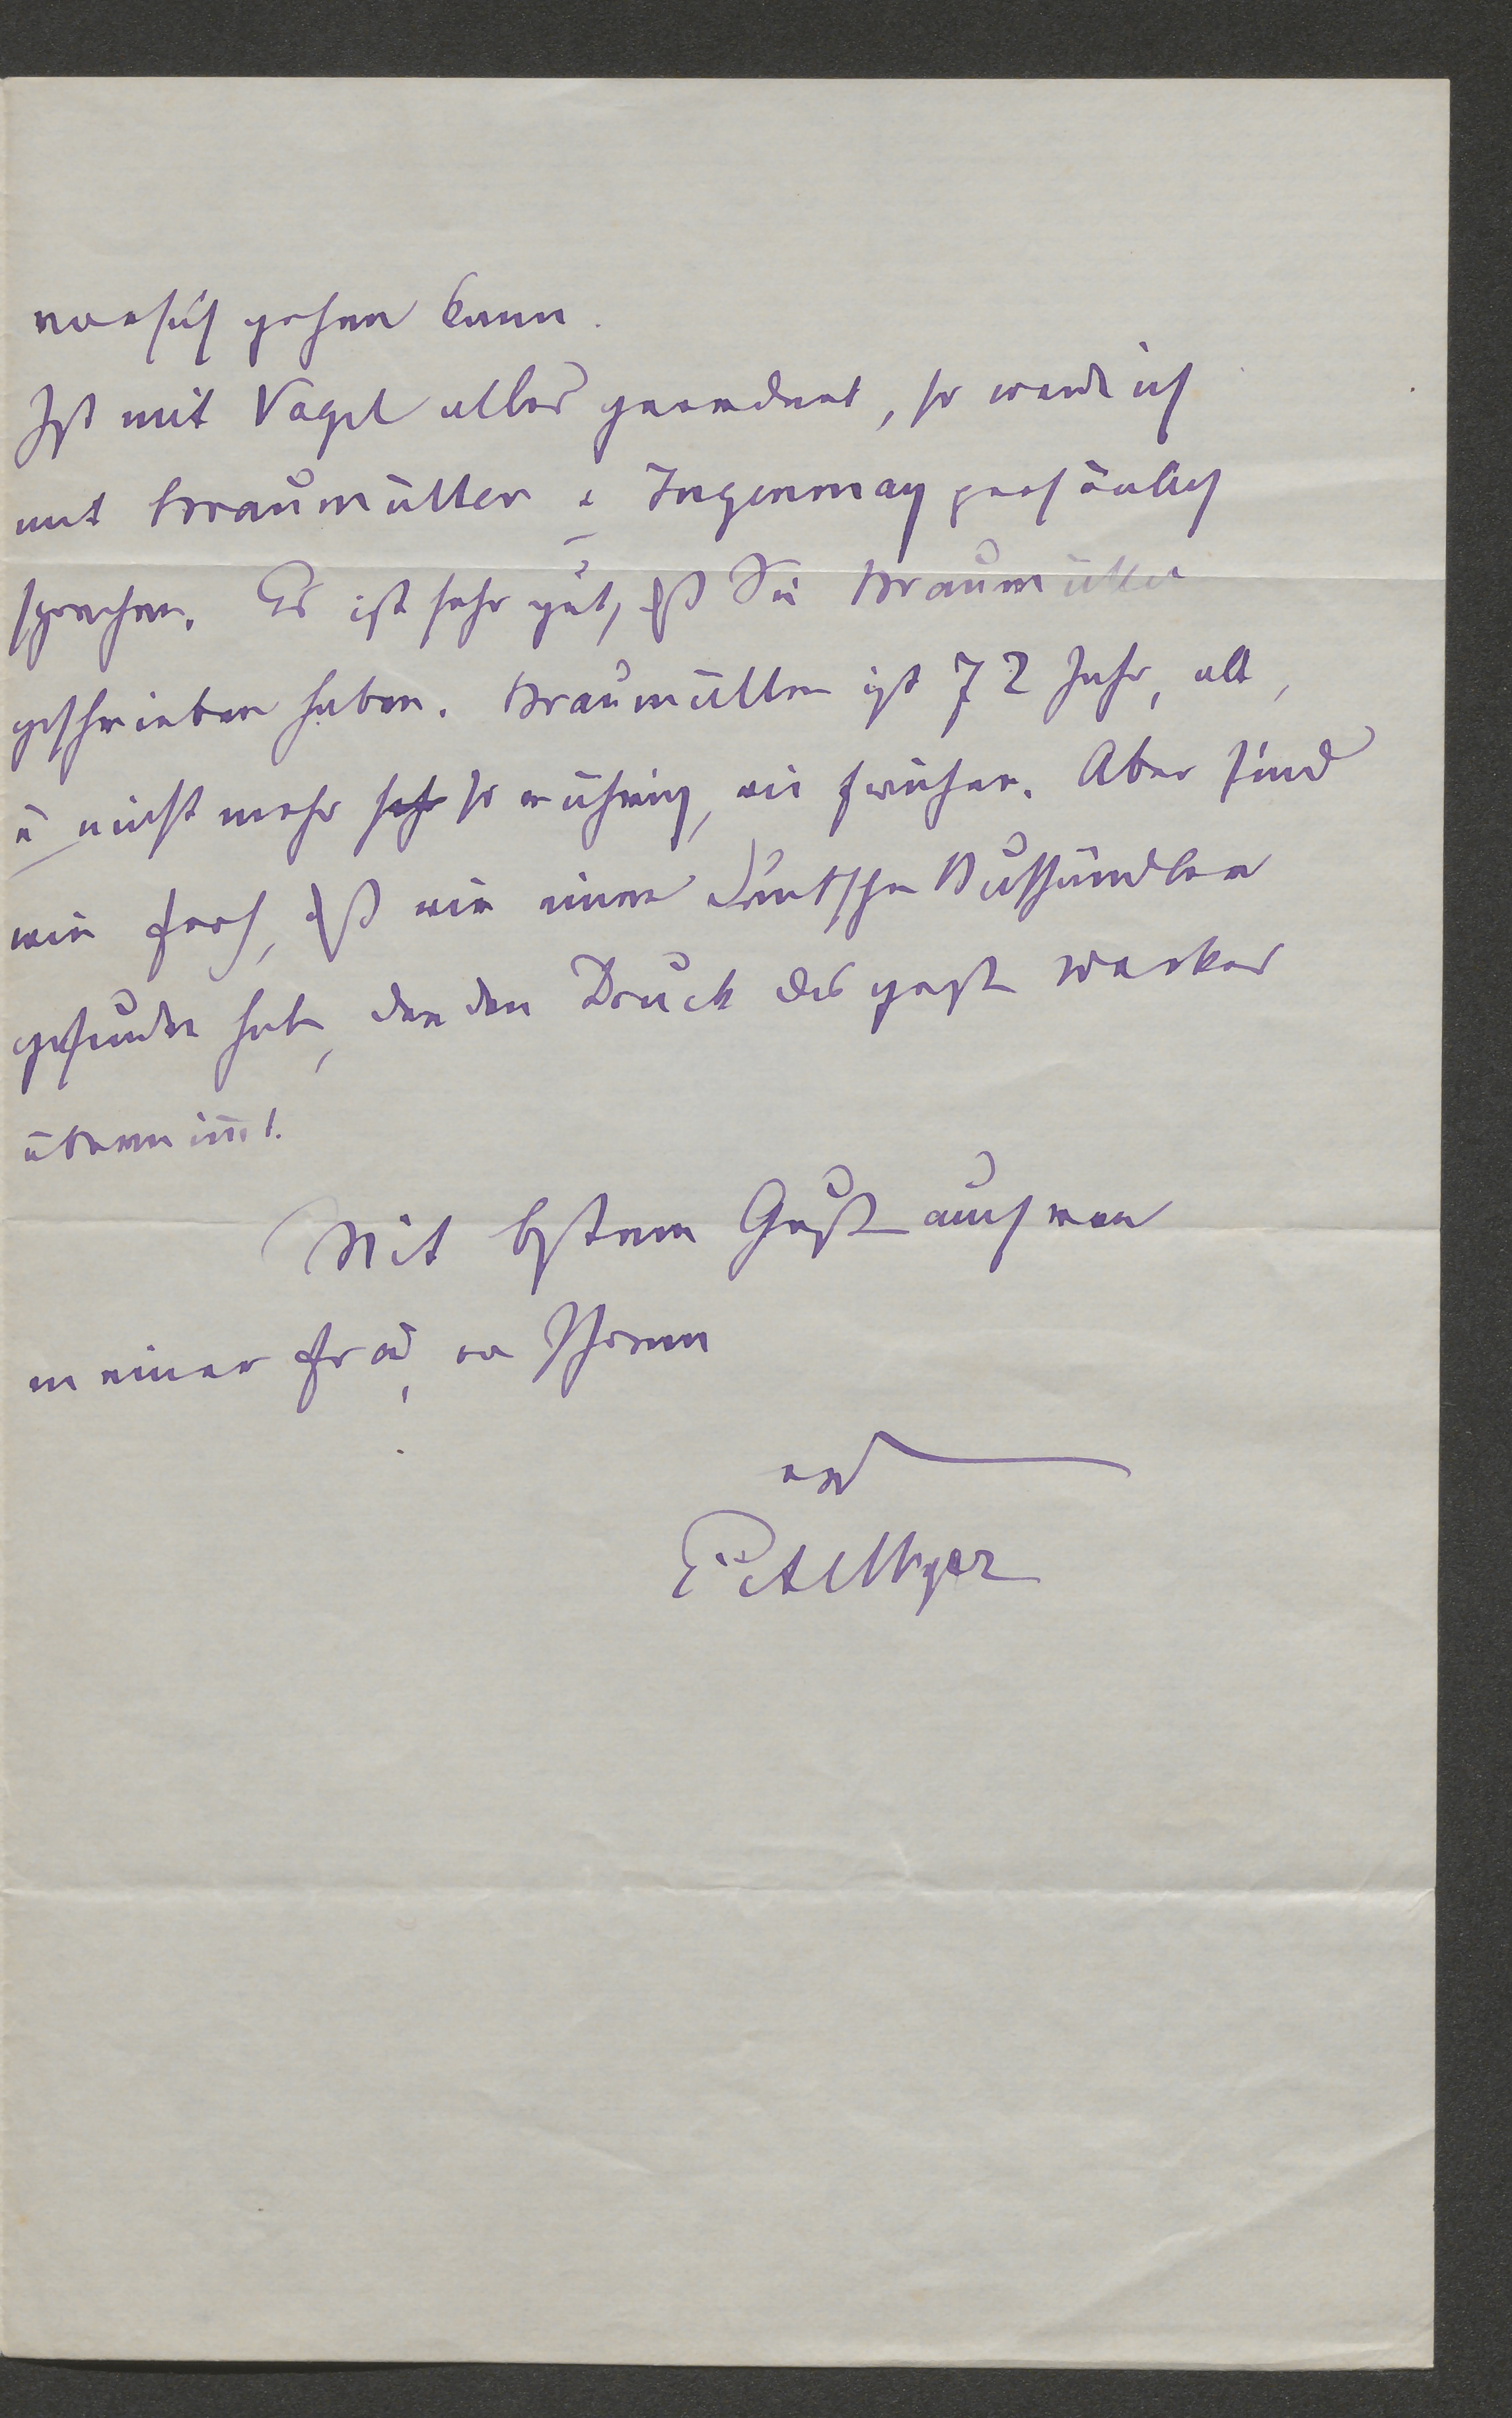 vor sich gehen kann.
Ist mit Vogel alles geordnet, so werde ich
mit Braumüller u Ingenmay persönlich
sprechen. Es ist sehr gut, dß Sie Braumüller
geschrieben haben. Braumüller ist 72 Jahr, alt,
u nicht mehr sehr so rührig, wie früher. Aber sind
wir froh, dß wir einen deutschen Buchhändler
gefunden habe, der den Druck des Werkes
übernim̅t.
Mit bestem Gruß auch von
meiner Frau, an Ihren
Eitelberger